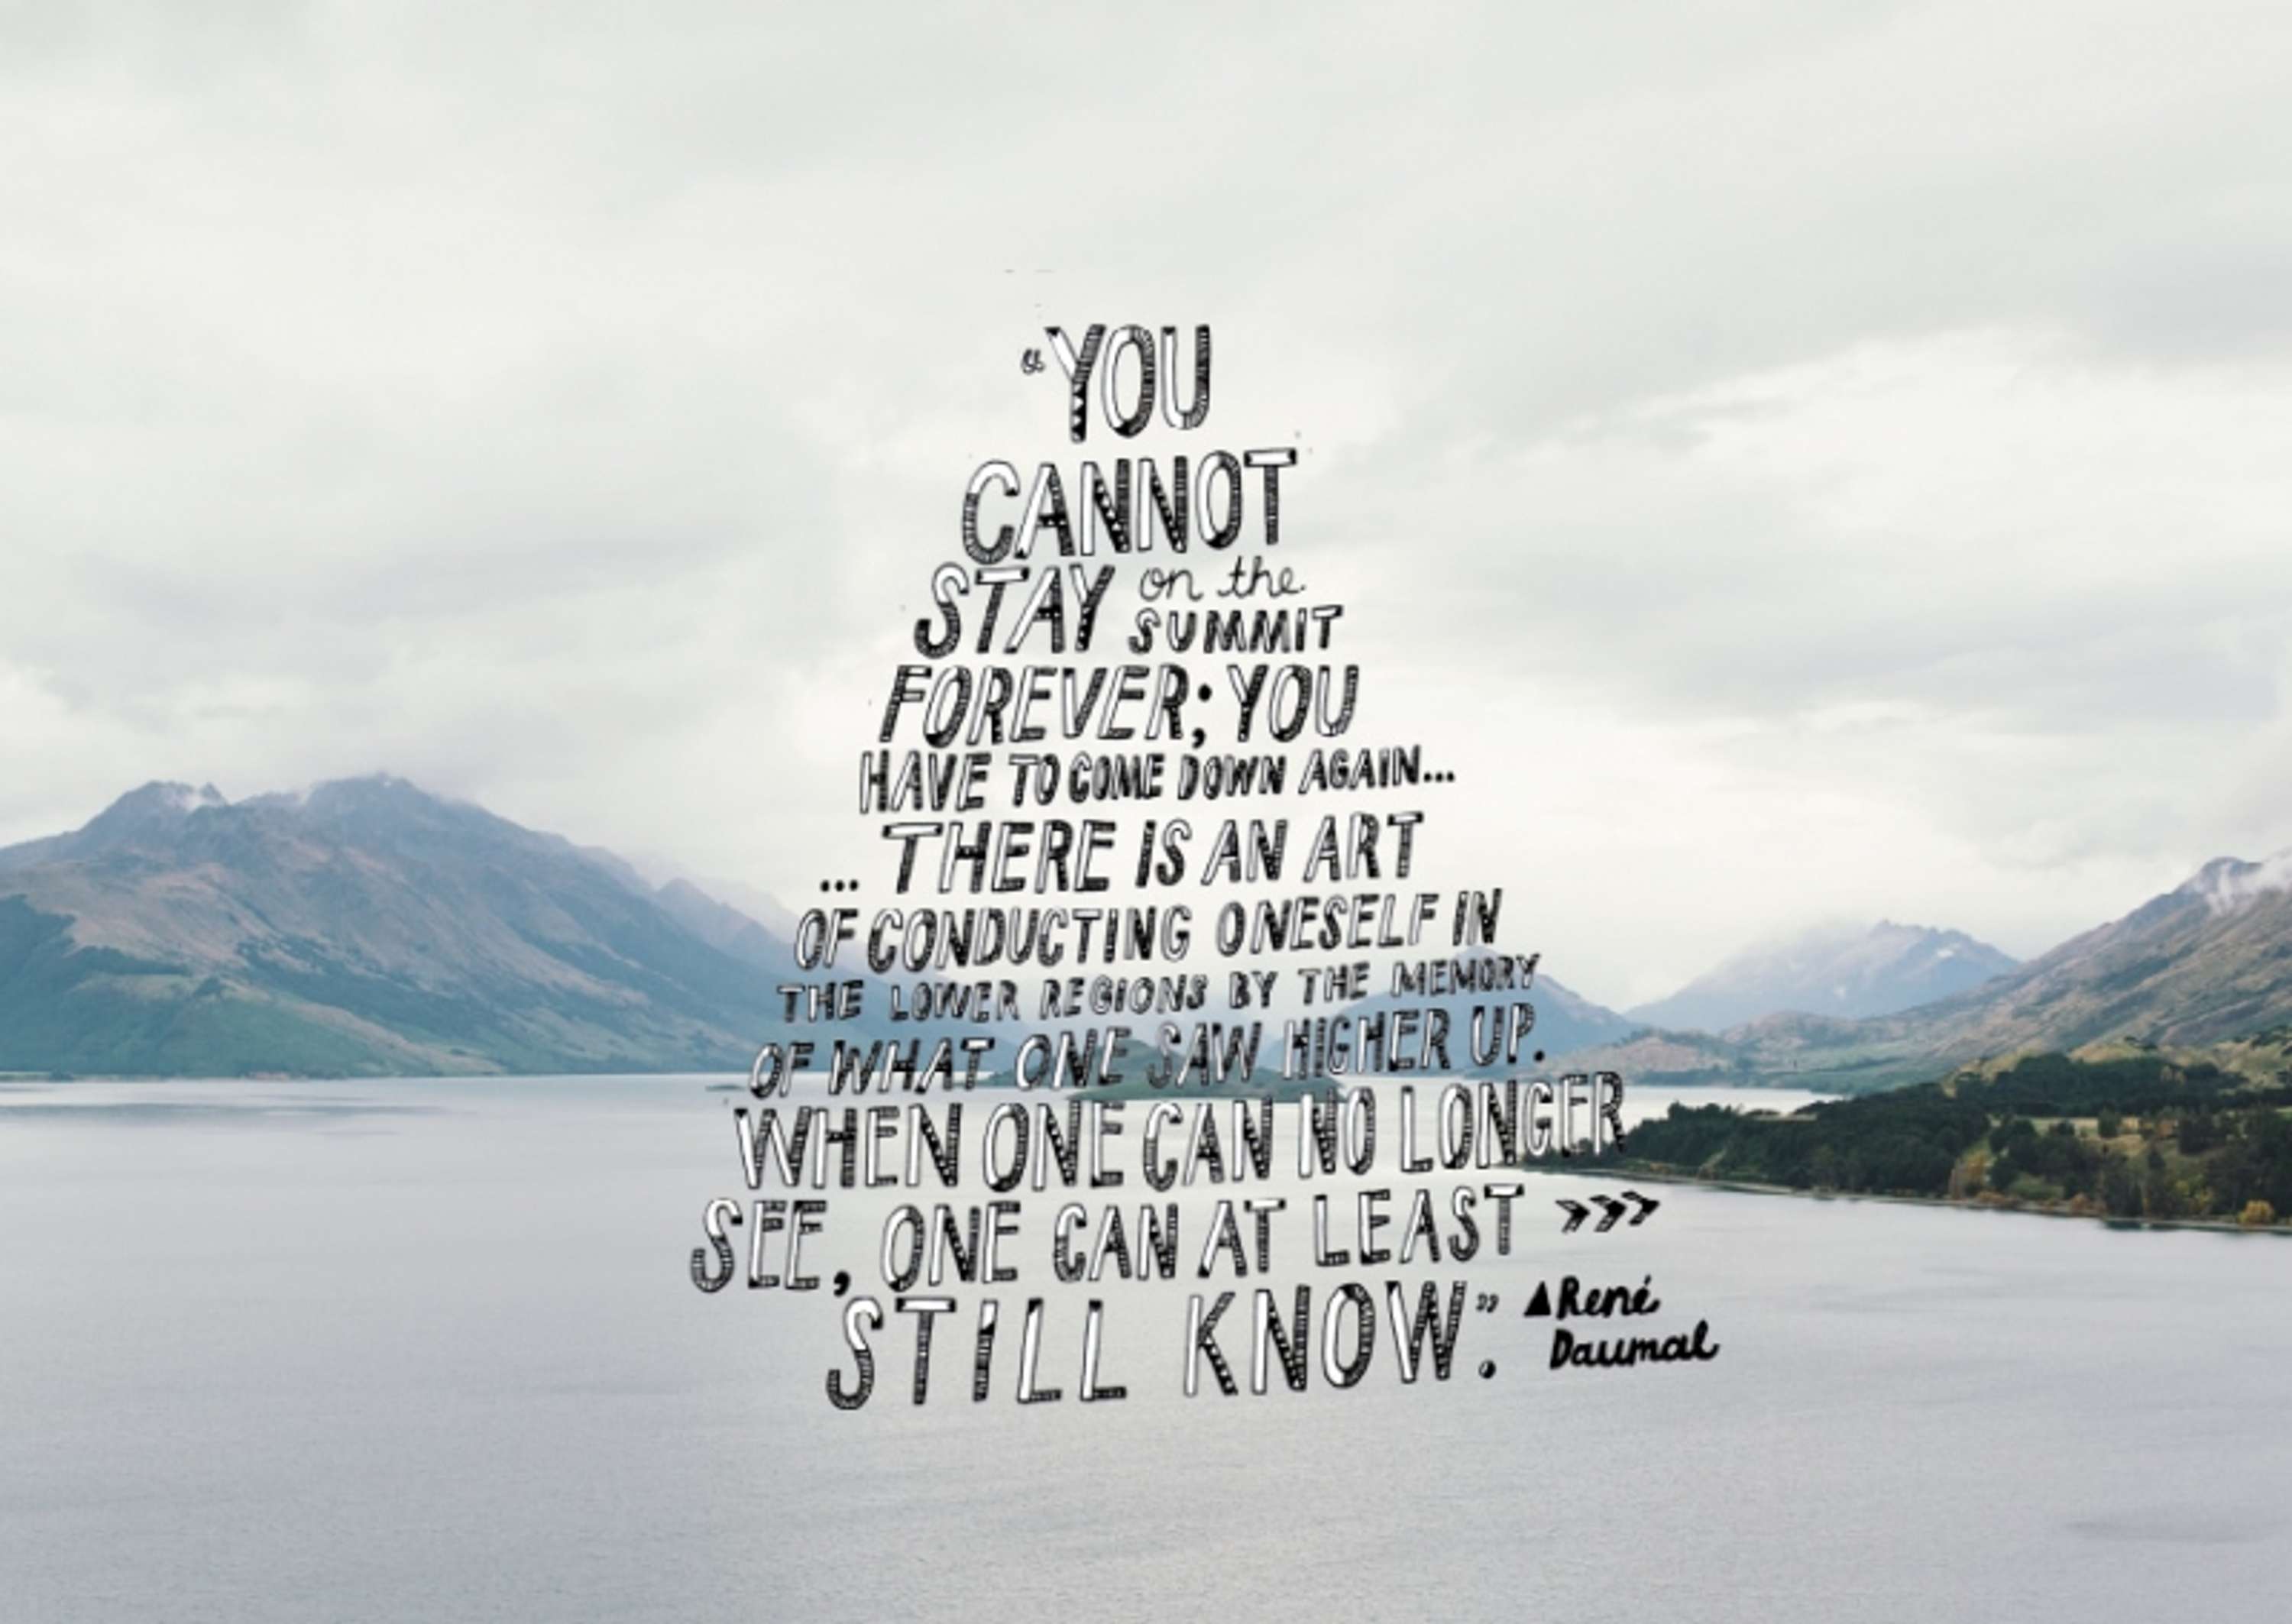 “YOU
CANNOT
STAY on the
SUMMIT
FOREVER; YOU
HAVE TO COME DOWN AGAIN...
... THERE IS AN ART
OF CONDUCTING ONESELF IN
THE LOWER REGIONS BY THE MEMORY
OF WHAT ONE SAW HIGHER UP.
WHEN ONE CAN NO LONGER
SEE, ONE CAN AT LEAST >>>
STILL KNOW.” ▲René
Daumal